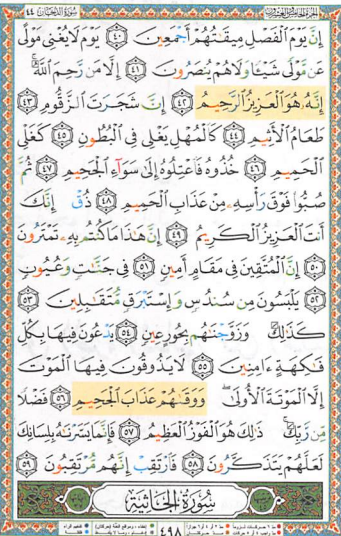 سورة الدخان ٤٤
الجزء الخامس والعشرون
إِنَّ يَوْمَ ٱلْفَصْلِ مِيقَـٰتُهُمْ أَجْمَعِينَ ٤٠ يَوْمَ لَا يُغْنِى مَوْلًى
عَن مَّوْلًى شَيْـًٔا وَلَا هُمْ يُنصَرُونَ ٤١ إِلَّا مَن رَّحِمَ ٱللَّهُ ۚ
إِنَّهُۥ هُوَ ٱلْعَزِيزُ ٱلرَّحِيمُ ٤٢ إِنَّ شَجَرَتَ ٱلزَّقُّومِ ٤٣
طَعَامُ ٱلْأَثِيمِ ٤٤ كَٱلْمُهْلِ يَغْلِى فِى ٱلْبُطُونِ ٤٥ كَغَلْىِ
ٱلْحَمِيمِ ٤٦ خُذُوهُ فَٱعْتِلُوهُ إِلَىٰ سَوَآءِ ٱلْجَحِيمِ ٤٧ ثُمَّ
صُبُّوا۟ فَوْقَ رَأْسِهِۦ مِنْ عَذَابِ ٱلْحَمِيمِ ٤٨ ذُقْ إِنَّكَ
أَنتَ ٱلْعَزِيزُ ٱلْكَرِيمُ ٤٩ إِنَّ هَـٰذَا مَا كُنتُم بِهِۦ تَمْتَرُونَ
٥٠ إِنَّ ٱلْمُتَّقِينَ فِى مَقَامٍ أَمِينٍ ٥١ فِى جَنَّـٰتٍ وَعُيُونٍ
٥٢ يَلْبَسُونَ مِن سُندُسٍ وَإِسْتَبْرَقٍ مُّتَقَـٰبِلِينَ ٥٣
كَذَٰلِكَ وَزَوَّجْنَـٰهُم بِحُورٍ عِينٍ ٥٤ يَدْعُونَ فِيهَا بِكُلِّ
فَـٰكِهَةٍ ءَامِنِينَ ٥٥ لَا يَذُوقُونَ فِيهَا ٱلْمَوْتَ
إِلَّا ٱلْمَوْتَةَ ٱلْأُولَىٰ ۖ وَوَقَىٰهُمْ عَذَابَ ٱلْجَحِيمِ ٥٦ فَضْلًا
مِّن رَّبِّكَ ۚ ذَٰلِكَ هُوَ ٱلْفَوْزُ ٱلْعَظِيمُ ٥٧ فَإِنَّمَا يَسَّرْنَـٰهُ بِلِسَانِكَ
لَعَلَّهُمْ يَتَذَكَّرُونَ ٥٨ فَٱرْتَقِبْ إِنَّهُم مُّرْتَقِبُونَ ٥٩
سُورَةُ الجَاثِيَةِ
٤٩٨